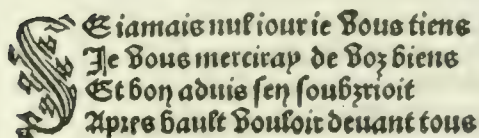 SE iamais nul iour ie vous tiens
Je vous merciray de voz biens
Et bon aduis sen soubzrioit
Apres hault vouloir deuant tous